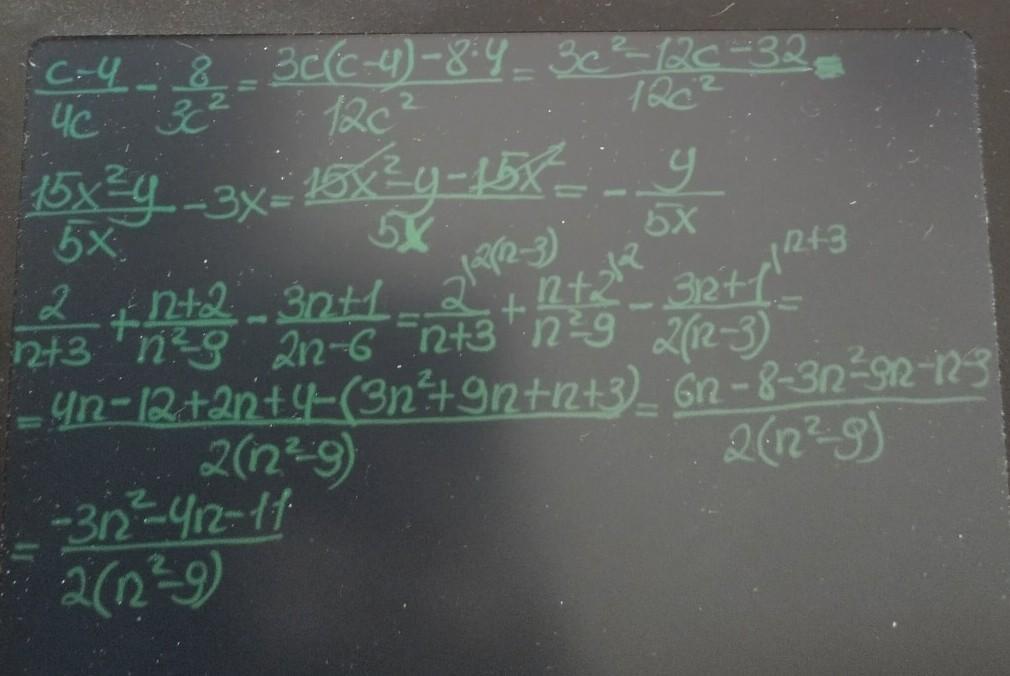 (c-4)/(4c) - 8/(3c²) = (3c(c-4)-8·4)/(12c²) = (3c²-12c-32)/(12c²)
(15x²-y)/(5x) - 3x = (15x²-y-15x²)/(5x) = -y/(5x)
2/(n+3) + (n+2)/(n²-9) - (3n+1)/(2n-6) = 2\2(n-3)/(n+3) + (n+2)\2/(n²-9) - (3n+1)\n+3/(2(n-3)) =
= (4n-12+2n+4-(3n²+9n+n+3))/(2(n²-9)) = (6n-8-3n²-9n-n-3)/(2(n²-9))
= (-3n²-4n-11)/(2(n²-9))